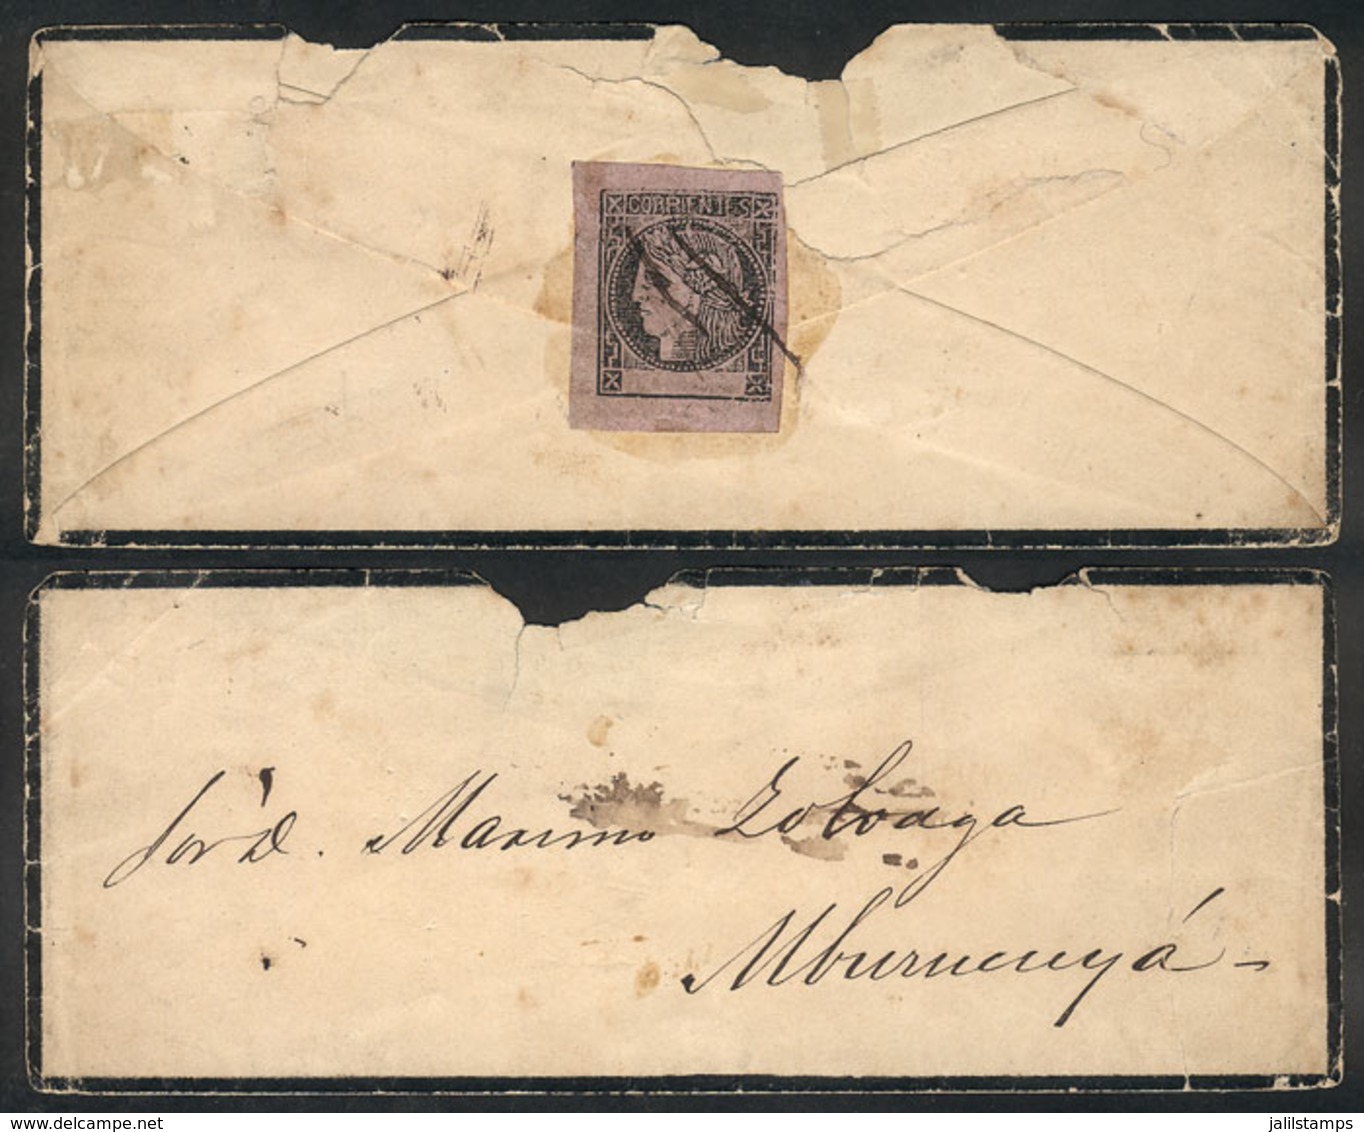 CORRIENTES
Sor D. Maximo Zoloaga
Mburucuyá -
www.delcampe.net
jalilstamps